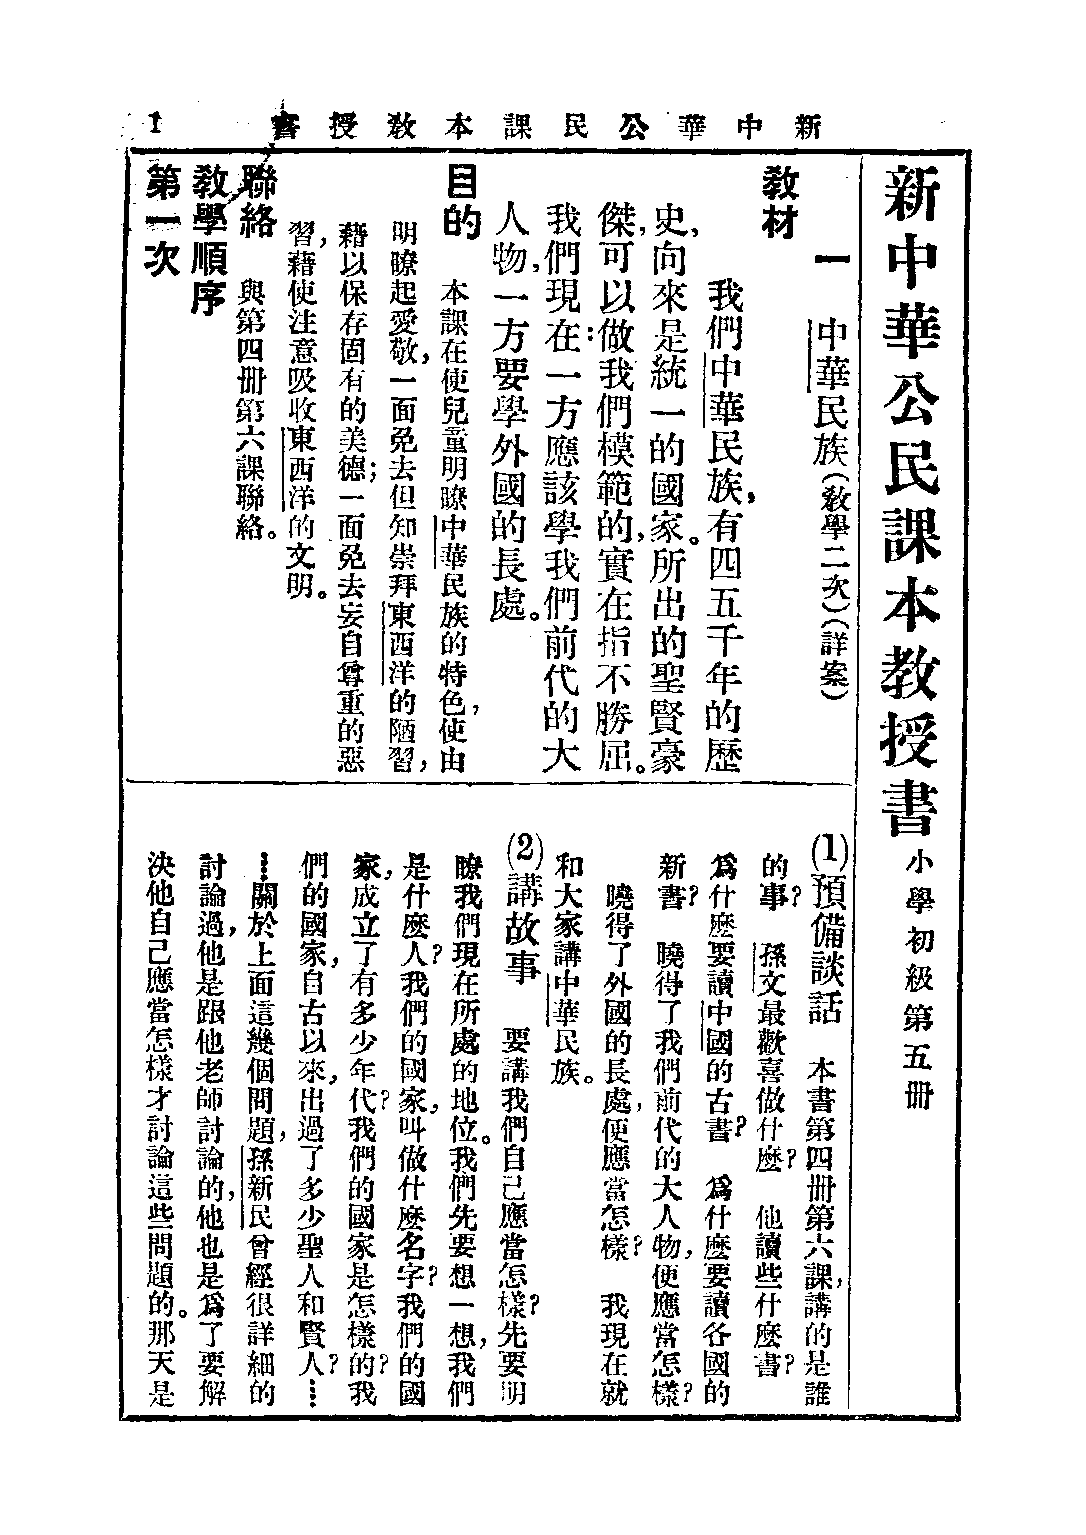 新中華公民課本教授書
1
新中華公民課本教授書 小學初級第五冊
一 中華民族(教學二次)(詳案)
教材
我們中華民族,有四五千年的歷
史,向來是統一的國家。所出的聖賢豪
傑,可以做我們模範的,實在指不勝屈。
我們現在:一方應該學我們前代的大
人物,一方要學外國的長處。
目的 本課在使兒童明瞭中華民族的特色,使由
明瞭起愛敬,一面免去但知崇拜東西洋的陋習,
藉以保存固有的美德;一面免去妄自尊重的惡
習,藉使注意吸收東西洋的文明。
聯絡 與第四冊第六課聯絡。
教學順序
第一次
(1)預備談話 本書第四冊第六課,講的是誰
的事? 孫文最歡喜做什麼? 他讀些什麼書?
爲什麼要讀中國的古書? 爲什麼要讀各國的
新書? 曉得了我們前代的大人物,便應當怎樣?
曉得了外國的長處,便應當怎樣? 我現在就
和大家講中華民族。
(2)講故事 要講我們自己應當怎樣?先要明
瞭我們現在所處的地位。我們先要想一想,我們
是什麼人?我們的國家,叫做什麼名字?我們的國
家,成立了有多少年代?我們的國家是怎樣的?我
們的國家,自古以來,出過了多少聖人和賢人?……
……關於上面這幾個問題,孫新民曾經很詳細的
討論過,他是跟他老師討論的,他也是爲了要解
決他自己應當怎樣才討論這些問題的。那天是